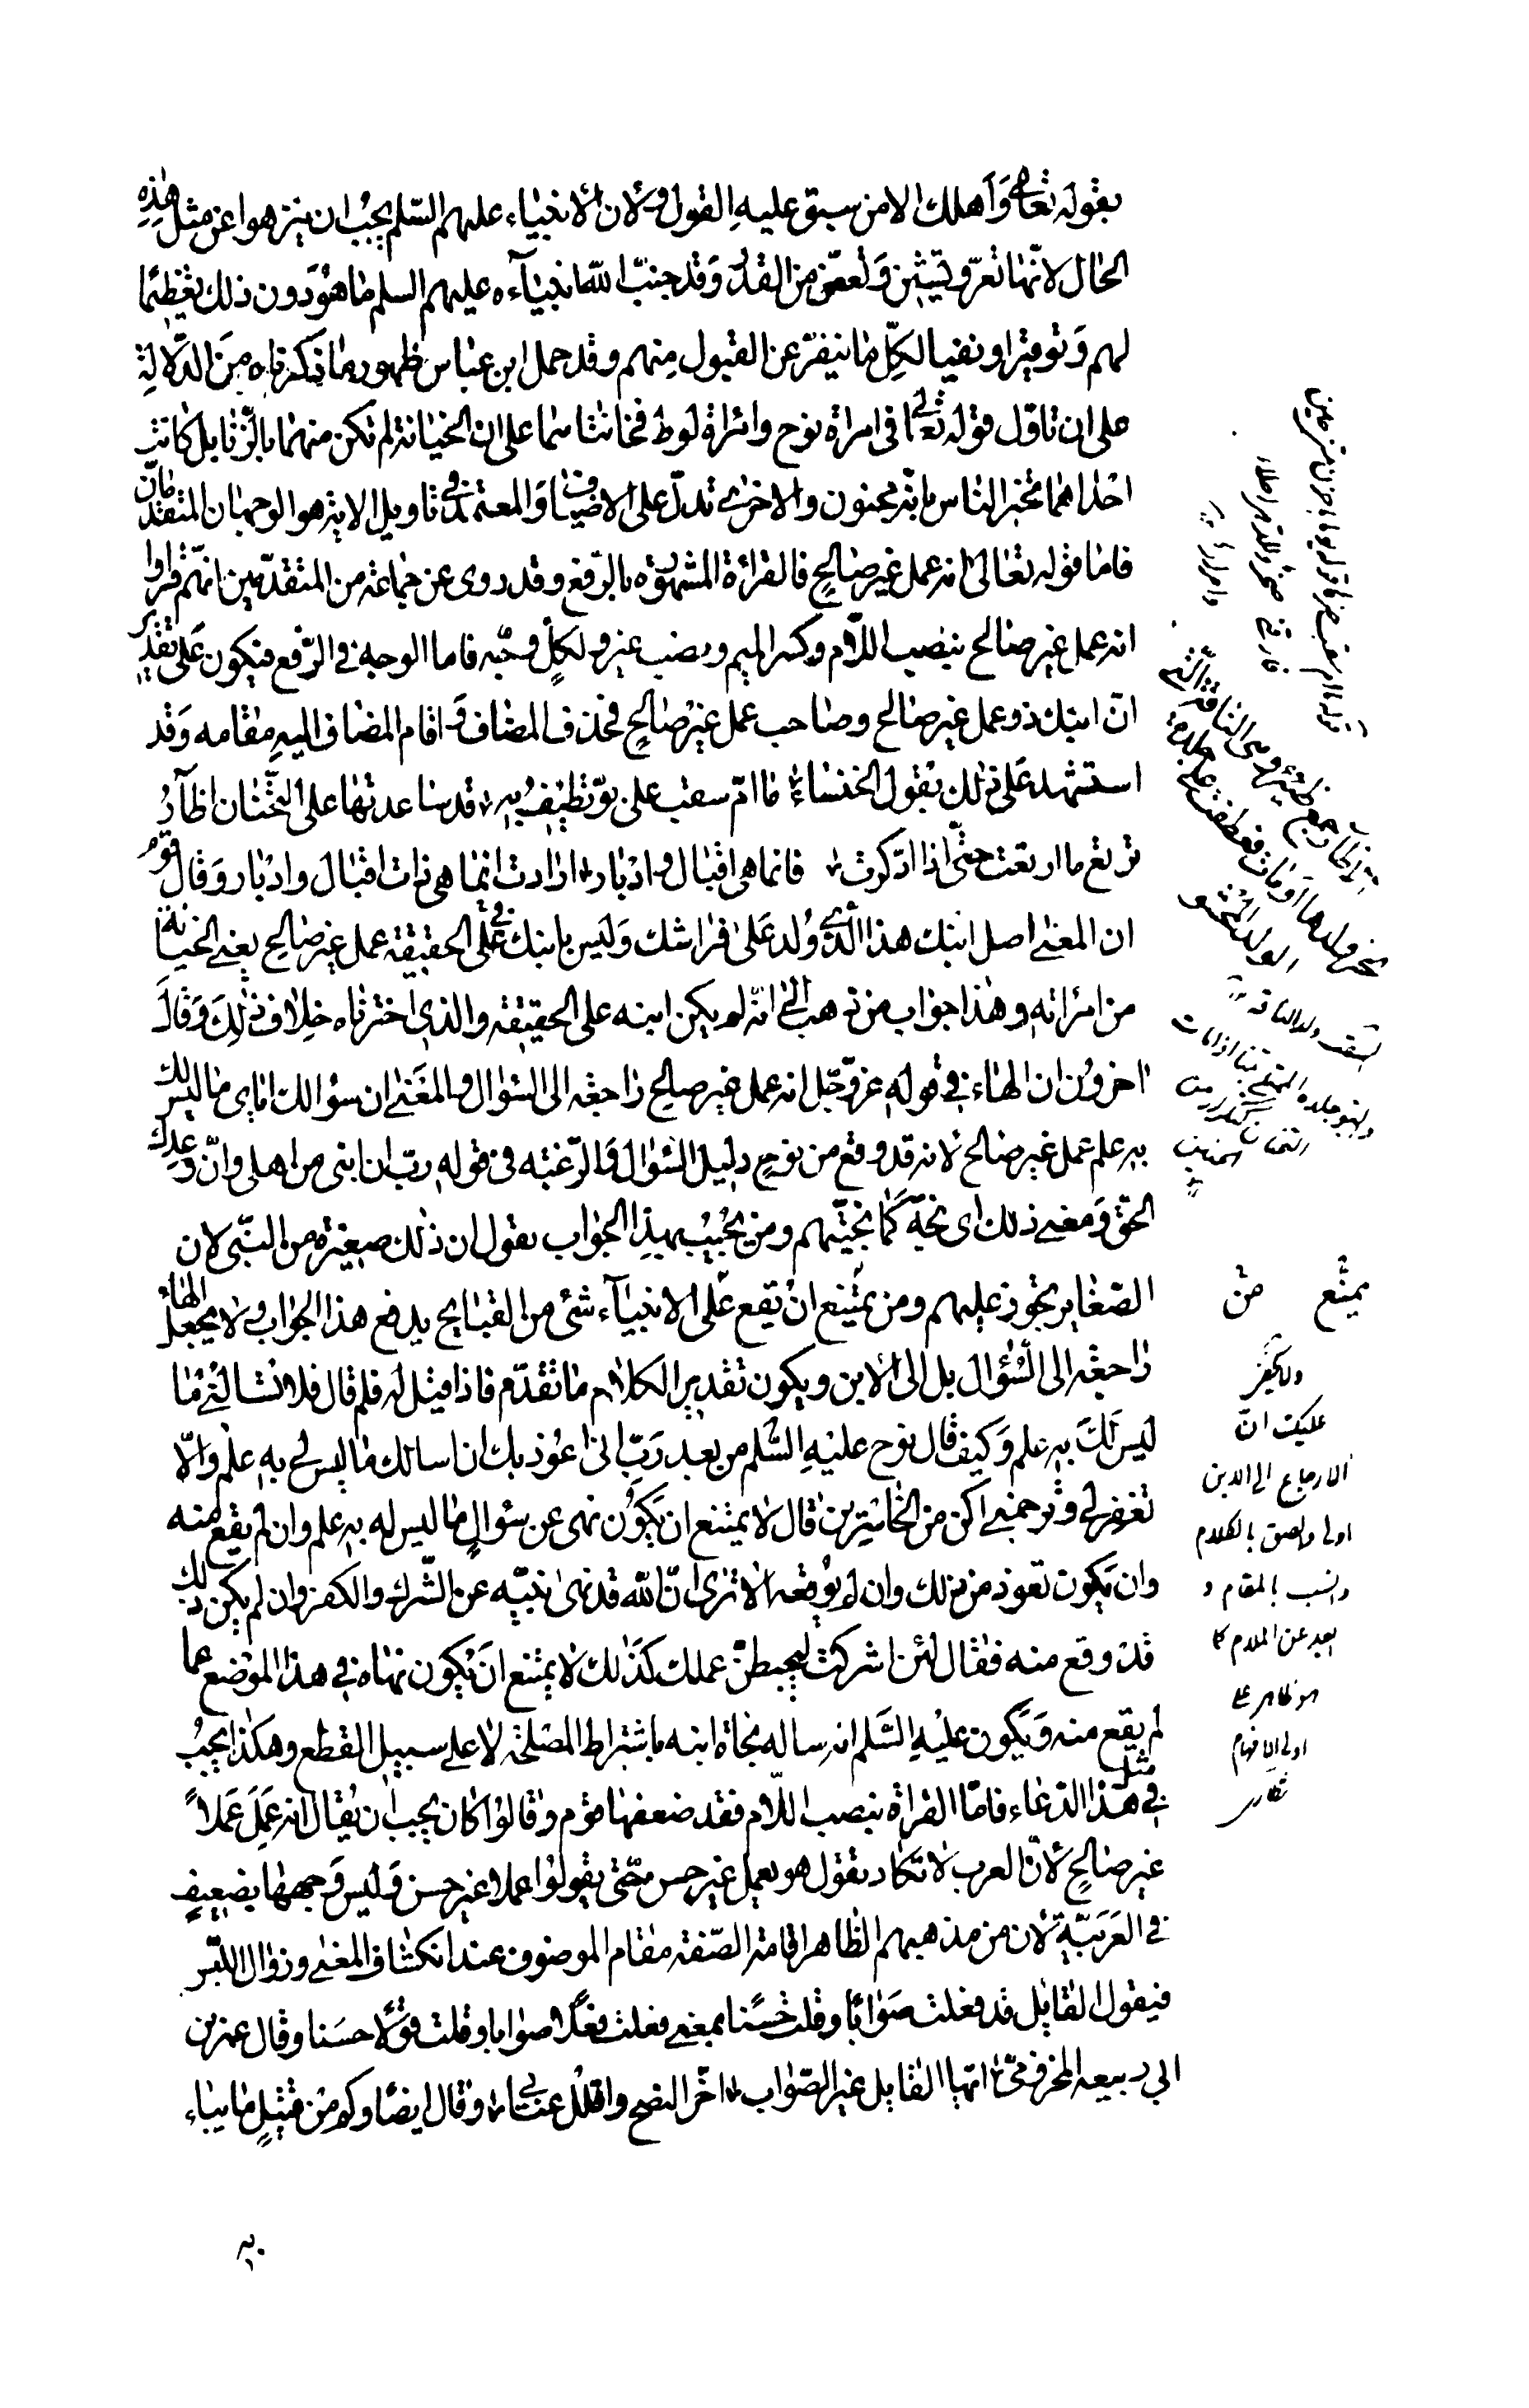 بقوله تعالى وَاَهلك الا من سبق عليهِ القول ولان الانبياء عليهم السّلم يجبُ ان ينزهوا عن مثل هذِهِ
الحال لانّها تعرّ وتشين وَتغضّ من القدر وَقد جنبّ اللّه انبيآءه عليهم السلم ما هوَ دَون ذلك تعظيمًا
لهم وَتوقيرا ونفيا لكلِّ ما ينفرّ عن القبول مِنهم وقد حمل ابن عباس ظهور ما ذكرناه مِنَ الدّلالةِ
على ان تاوّل قوله تعالى فى امراة نوح وامراة لوط فخانتاهما على ان الخيانة لم تكن منهما بالزّنا بل كانت
احداهما تخبر الناس بانه مجنون والاخرى تدلّ على الاضياف وَالمعتمد فى تاويل الاية هو الوجهان المتقدّمان
فاما قوله تعالى انه عمل غير صالحٍ فالقراءة المشهورة بالرّفع وقد روى عن جماعة من المتقدّمين انهّم قراوا
انه عمل غير صالح بنصب اللاّم وكسر الميم ونصب غير ولكلٍ وجهّ فاما الوجه فى الرّفع فيكون عَلى تقدير
انّ ابنك ذو عمل غير صالح وصاحب عمل غير صالحٍ فحذف المضاف وَاقام المضاف اليهِ مقامه وَقد
استشهد عَلى ذلك بقول الخنساء ما امّ سقب على بوّ تطيف بهِ قد ساعدتها على التّحنان اظآرُ
ترتع ما ارتعت حتّى اذا ادّكرت فانما هى اقبال وادبار ارادت انما هى ذات اقبال وادبار وَقال قوم
ان المعنى اصل ابنك هذا الّذى وُلد عَلى فراشك وَليس بابنك على الحقيقة عمل غير صالح يعنى الخيانة
من امراته وهذا جواب من ذهب الى انّه لم يكن ابنه على الحقيقة والذى اخترناه خِلاف ذٰلِكَ وَقالَ
اخرون ان الهاء فى قولهِ عز وجّل انه عمل غير صالح راجعة الى السّؤال والمعنى ان سؤالك اياى ما ليس لك
بهِ علم عمل غير صالح لانه قد وقع من نوح دليل السّؤال وَالرّغبة فى قولهِ ربّ ان ابنى من اهلى وانّ وعدك
الحقّ وَمعنى ذلك اى نجّه كما نجّيتهم ومن يجُيبُ بهذا الجواب يقول ان ذٰلك صغيرة من النّبى لان
الصّغاير تجوز عليهم ومن يمتنع ان يقع عَلى الانبيآء شئ من القبايح يدفع هذا الجواب ولا يجعل الهاء
راجعة الى السّؤال بل الى الابن ويكون تقدير الكلام ما تقدّم فاذا قيل له فلم قال فلا تسالنى ما
ليس لَكَ بهِ علم وَكيف قال نوح عليهِ السّلم من بعد رَبّ انى اعُوذ بك ان اسالك ما ليس لى بهِ علم وَالّا
تغفر لى وترحمنى اكن من الخاسرين قال لا يمتنع ان يَكوُن نهى عن سؤالٍ ما ليس له بهِ علم وان لم يقع منه
وان يَكون تعوذ من ذلك وان لم يوقعه الا ترى انّ اللّه قد نهى نبيّه عن الشّرك والكفر وان لم يكن ذلك
قد وقع منه فقال لئن اشركت ليحبطنّ عملك كذٰلك لا يمتنع ان يكون نهاه فى هذا الموضع عما
لم يقع منه وَيَكون عليْهِ السَّلم انه ساله نجاة ابنه باشتراط المصلحة لا على سبيل القطع وهكذا يجبُ
فى مثل هذا الدّعاء فامّا القراة بنصب اللّام فقد ضعفها قوم وقالوا كان يجب ان يُقال انه عَمِلَ عَملاً
غير صالحٍ لانّ العرب لا تكاد تقول هو يعمل غير حسن حتّى يقولوا عملا غير حسن وَليس وَجهها بضعيفٍ
فى العَرَبيّة لان من مذهبهم الظاهر اقامة الصّفة مقام الموصوف عند انكشاف المعنى وزوال اللبس
فيقول القايل قد فعلت صَوابًا وقلت حَسَنًا بمعنى فعلت فعلًا صوابا وقلت قولًا حسَنا وقال عمر بن
ابى ربيعه المخزومىّ ايها القايل غير الصّواب اخّر النصح واقلل عتابى وقال ايضًا وكم من قتيلٍ ما يباء
يمتنع من
عليك انّ
الارجاع الى الابن
اولى والصق بالكلام
وانسب بالمقام و
ابعد عن الملام كما
هو ظاهر على
اولى الافهام